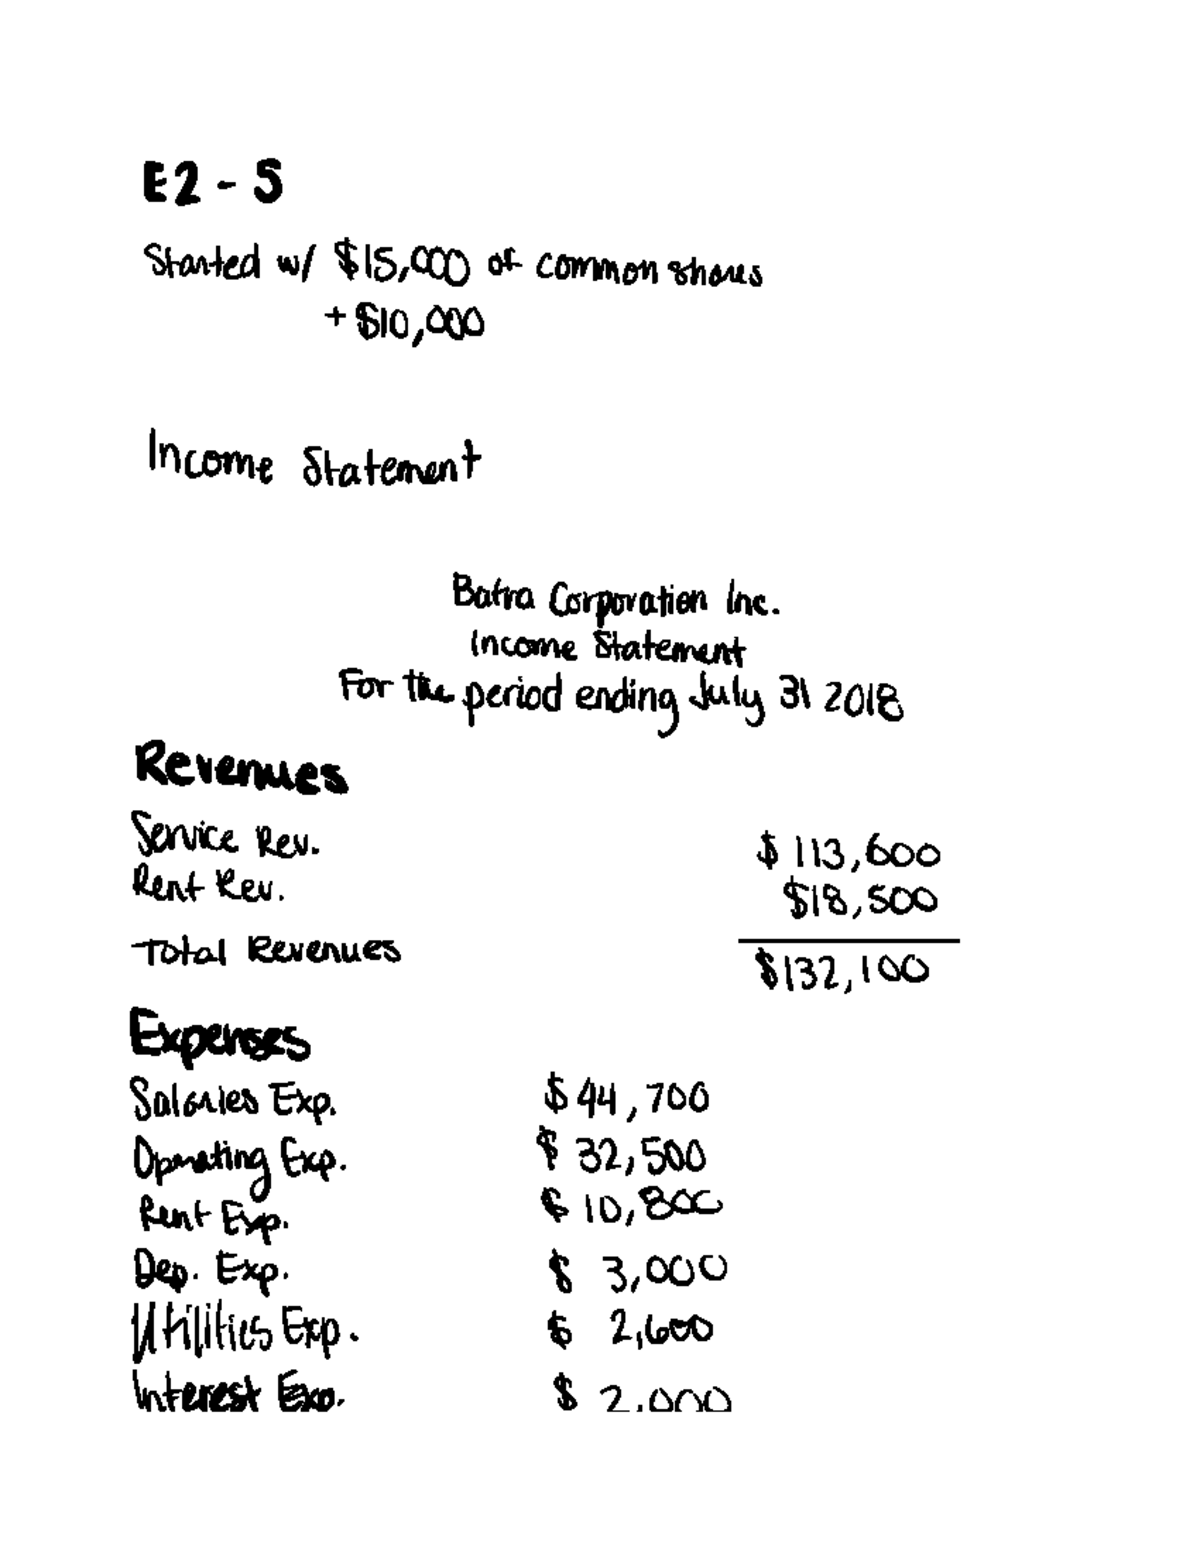 E2-5
Started w/ $15,000 of common shares
+ $10,000
Income Statement
Batra Corporation Inc.
Income Statement
For the period ending July 31 2018
Revenues
Service Rev. $113,600
Rent Rev. $18,500
Total Revenues $132,100
Expenses
Salaries Exp. $44,700
Operating Exp. $32,500
Rent Exp. $10,800
Dep. Exp. $3,000
Utilities Exp. $2,600
Interest Exp. $2,000